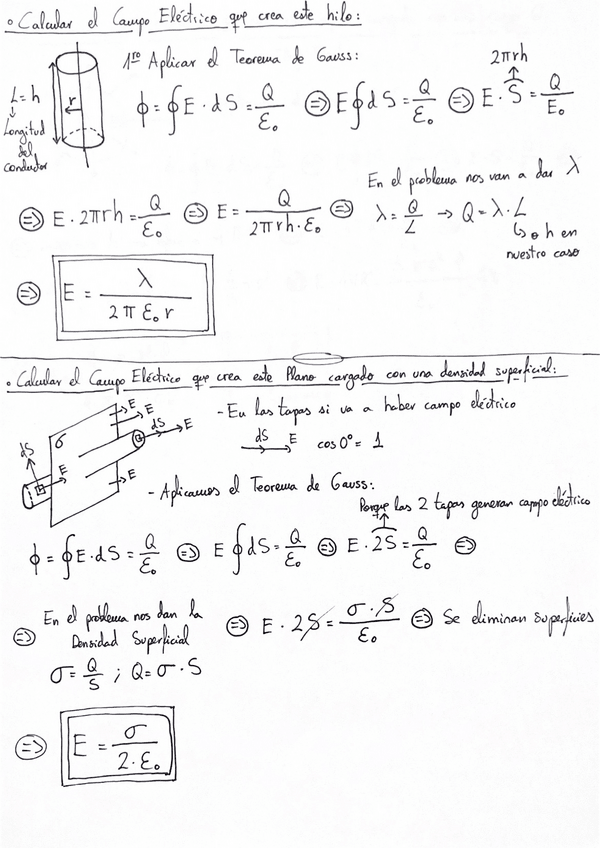 • Calcular el Campo Eléctrico que crea este hilo:
1ro Aplicar el Teorema de Gauss:
2πrh
L = h
r
Longitud
del
conductor
ϕ = ∮E · dS = Q/ε₀ ⇒ E∮dS = Q/ε₀ ⇒ E · S = Q/E₀
En el problema nos van a dar λ
⇒ E · 2πrh = Q/ε₀ ⇒ E = Q/(2πrh · ε₀) ⇒ λ = Q/L → Q = λ · L
↳ o h en
nuestro caso
⇒ E = λ/(2π ε₀ r)
• Calcular el Campo Eléctrico que crea este Plano cargado con una densidad superficial:
σ
dS
E
E
E
E
dS
E
E
- En las tapas si va a haber campo eléctrico
dS E cos 0° = 1
- Aplicamos el Teorema de Gauss:
Porque las 2 tapas generan campo eléctrico
ϕ = ∮E · dS = Q/ε₀ ⇒ E∮dS = Q/ε₀ ⇒ E · 2S = Q/ε₀ ⇒
⇒ En el problema nos dan la
Densidad Superficial
σ = Q/S ; Q = σ · S
⇒ E · 2S = σ · S/ε₀ ⇒ Se eliminan superficies
⇒ E = σ/(2 · ε₀)